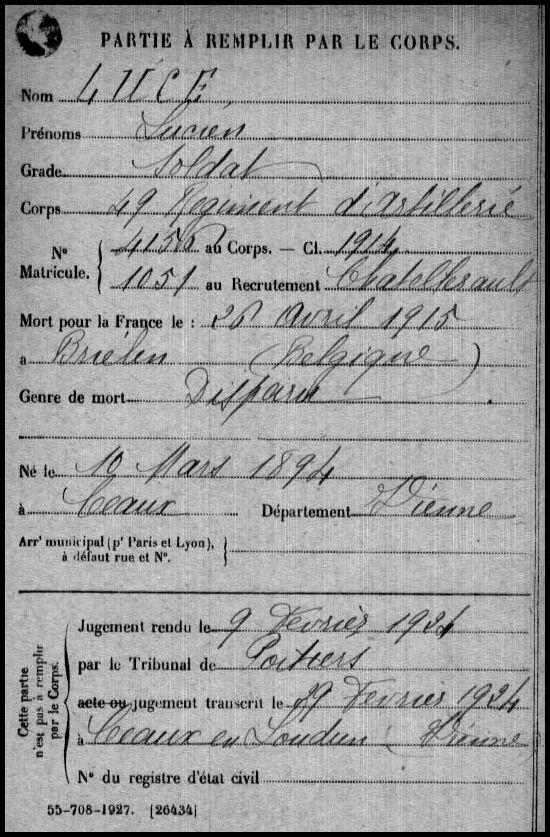 PARTIE À REMPLIR PAR LE CORPS.
Nom LUCE
Prénoms Lucien
Grade Soldat
Corps 49 Régiment d'Artillerie
Nº Matricule. 4156 au Corps. — Cl. 1914
1051 au Recrutement Chatellerault
Mort pour la France le : 26 Avril 1915
a Brielen (Belgique)
Genre de mort Disparu
Né le 10 Mars 1894
à Ceaux Département Vienne
Arrt municipal (pr Paris et Lyon),
à défaut rue et Nº.
Cette partie n'est pas à remplir par le Corps.
Jugement rendu le 9 Fevrier 1924
par le Tribunal de Poitiers
acte ou jugement transcrit le 29 Fevrier 1924
à Ceaux en Loudun (Vienne)
Nº du registre d'état civil
55-708-1927. [26434]